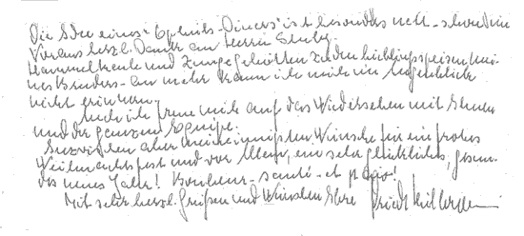 Die Idee eines "Ephruts-Diners" ist besonders nett - schon im
Voraus herzl. Dank an Herrn Stuby.
Hammelkeule und Zunge gehörten zu den Lieblingsspeisen mei-
nes Bruders - an mehr kann ich mich im Augenblick
nicht erinnern.
Auch ich freue mich auf das Wiedersehen mit Ihnen
und der ganzen Equipe.
Inzwischen aber meine innigsten Wünsche für ein frohes
Weihnachtsfest und vor Allem, ein sehr glückliches, gesun-
des neues Jahr! Bonheur - santé - et paix!
Mit sehr herzl. Grüßen und Wünschen Ihre